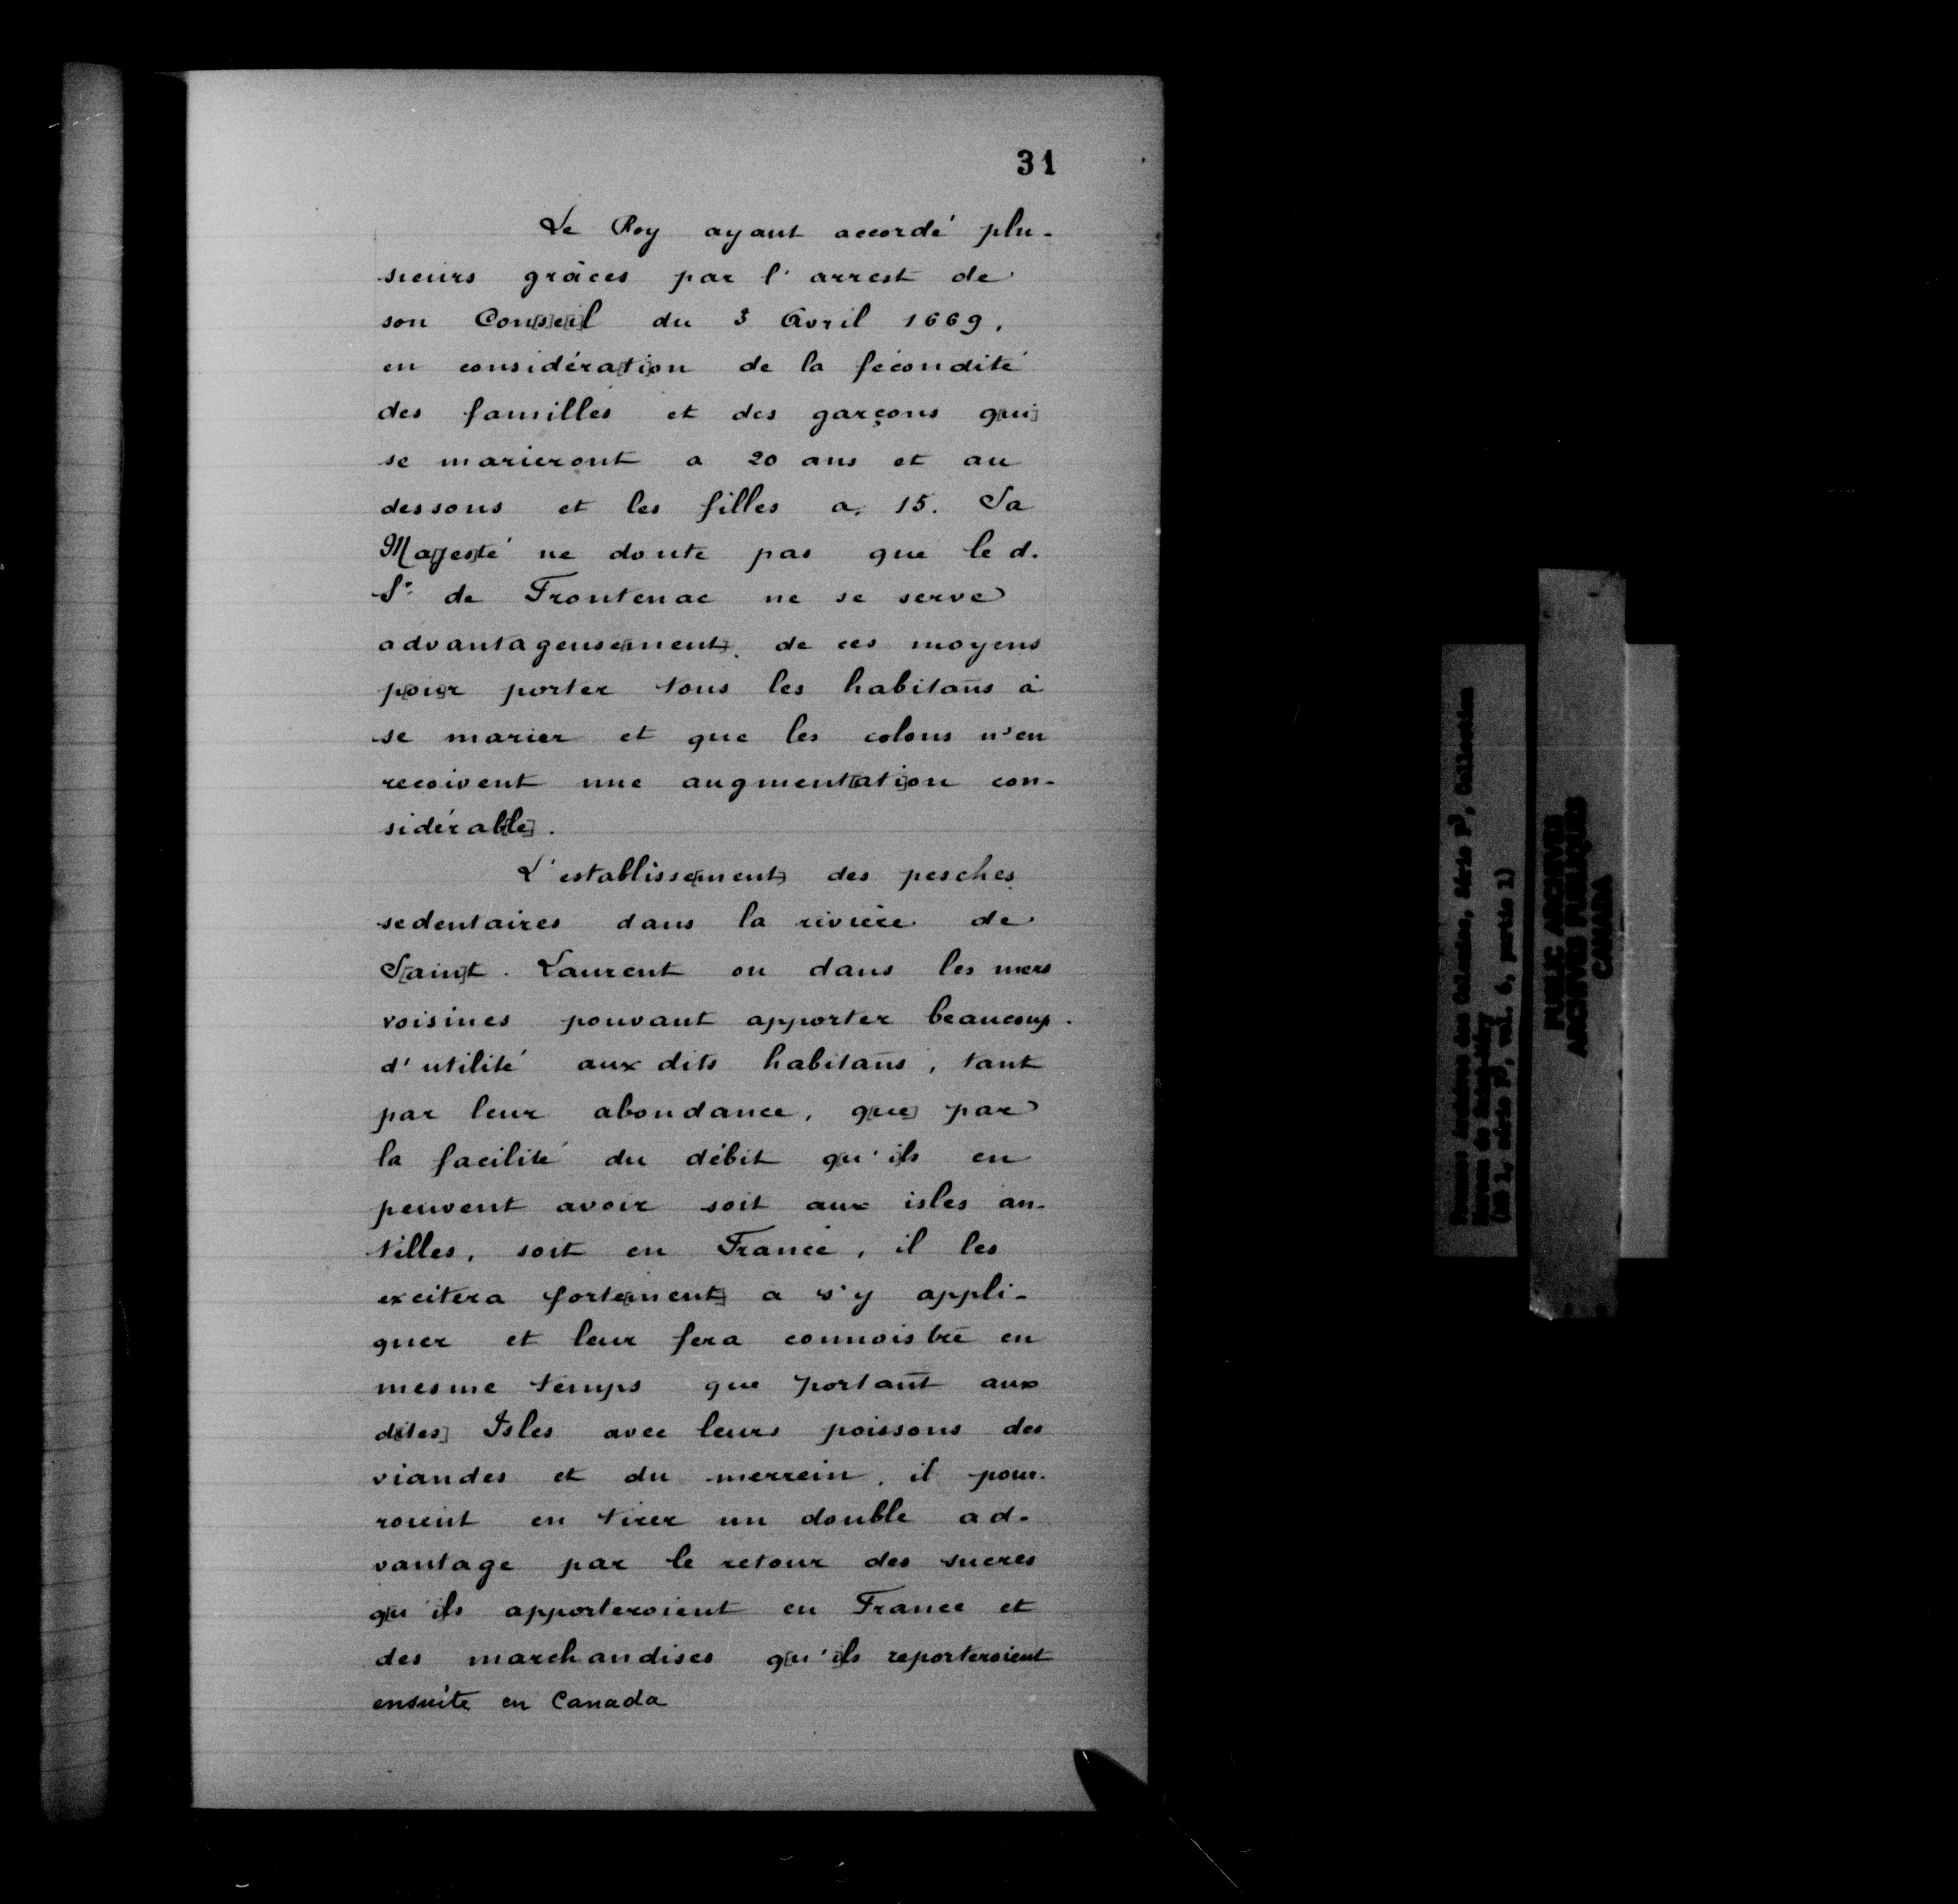 31
Le Roy ayant accordé plu-
sieurs grâces par l'arrest de
son Con[s]e[i]l du 3 Avril 1669,
en considéra[ti]on de la fécondité
des familles et des garçons q[ui]
se marieront a 20 ans et au
dessous et les filles a 15. Sa
Ma[jes]té ne doute pas que le d.
Sr de Frontenac ne se serve
advantageuse[ment] de ces moyens
p[ou]r porter tous les habitans à
se marier et que les colons n'en
recoivent une augment[ati]on con-
sidérab[le].
L'establisse[ment] des pesches
sedentaires dans la rivière de
S[ain]t. Laurent ou dans les mers
voisines pouvant apporter beaucoup
d'utilité aux dits habitans, tant
par leur abondance, q[ue] par
la facilité du débit qu'ils en
peuvent avoir soit aux isles an-
tilles, soit en France, il les
excitera forte[ment] a s'y appli-
quer et leur fera connoistre en
mesme temps que portant aux
d[ites] Isles avec leurs poissons des
viandes et du merrein, il pour-
roient en tirer un double ad-
vantage par le retour des sucres
q[u'i]ls apporteroient en France et
des marchandises q[u'i]ls reporteroient
ensuite en Canada
PUBLIC ARCHIVES
ARCHIVES PUBLIQUES
CANADA